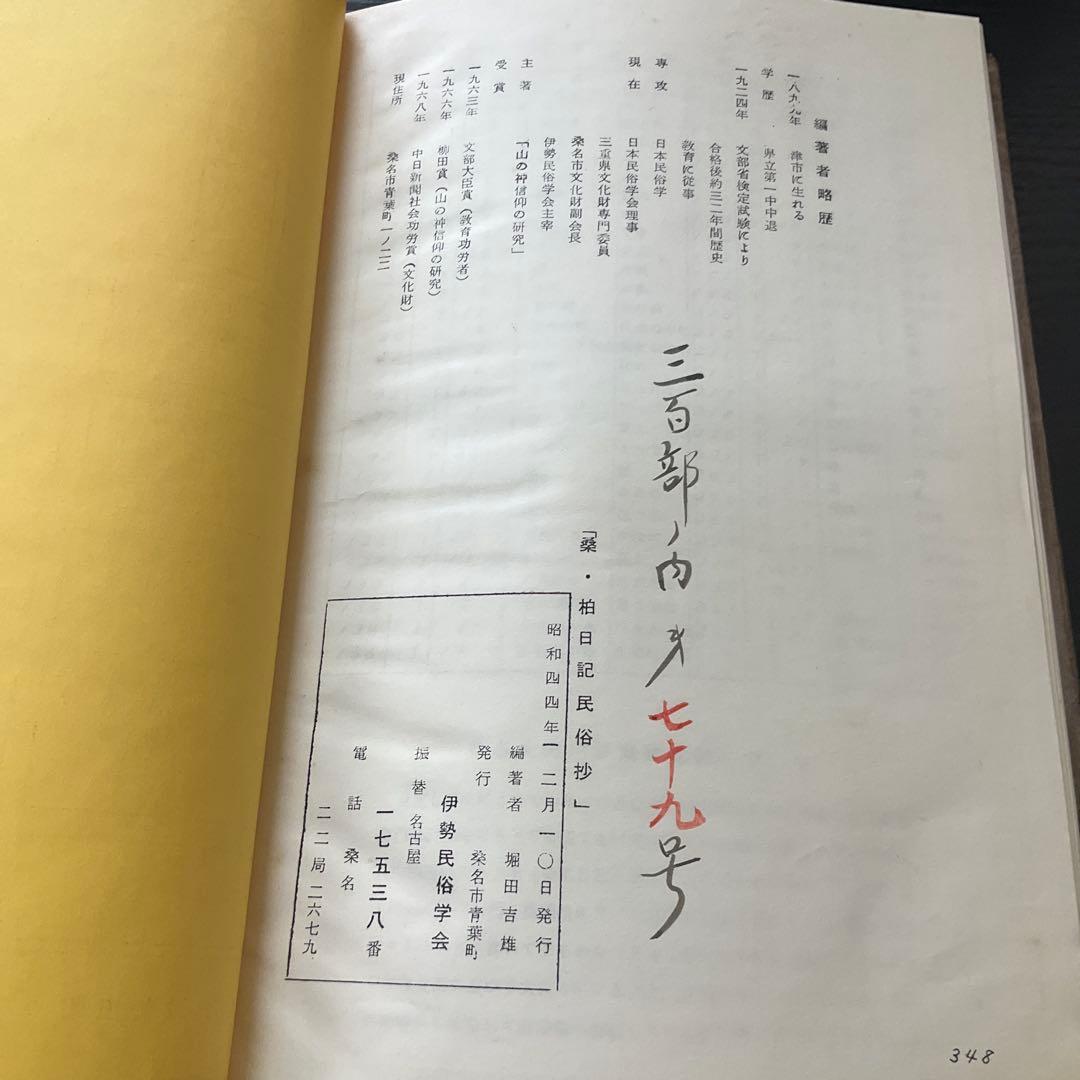 編著者略歴
一八九九年 津市に生れる
学歴 県立第一中中退
一九二四年 文部省検定試験により
合格後約三二年間歴史
教育に従事
専攻 日本民俗学
現在 日本民俗学会理事
三重県文化財専門委員
桑名市文化財副会長
伊勢民俗学会主宰
主著 「山の神信仰の研究」
受賞
一九六三年 文部大臣賞(教育功労者)
一九六六年 柳田賞(山の神信仰の研究)
一九六八年 中日新聞社会功労賞(文化財)
現住所 桑名市青葉町一ノ二二
三百部ノ内才七十九号
「桑・柏日記民俗抄」
昭和四四年一二月一〇日発行
編著者 堀田吉雄
発行 桑名市青葉町
伊勢民俗学会
振替 名古屋
一七五三八番
電話 桑名
二二局二六七九
348